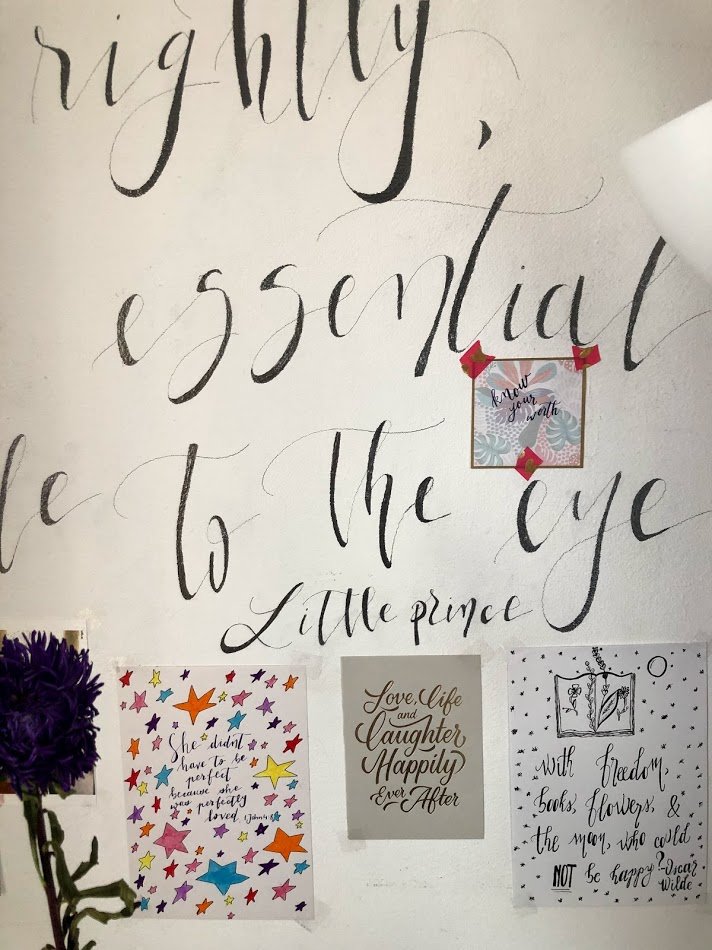 rightly,
essential
le to the eye
Little prince
know
your
worth
She didn't
have to be
perfect
because she
was perfectly
loved.
Love, life
and
laughter
Happily
Ever After
with freedom,
books, flowers, &
the moon, who could
NOT be happy? Oscar
Wilde